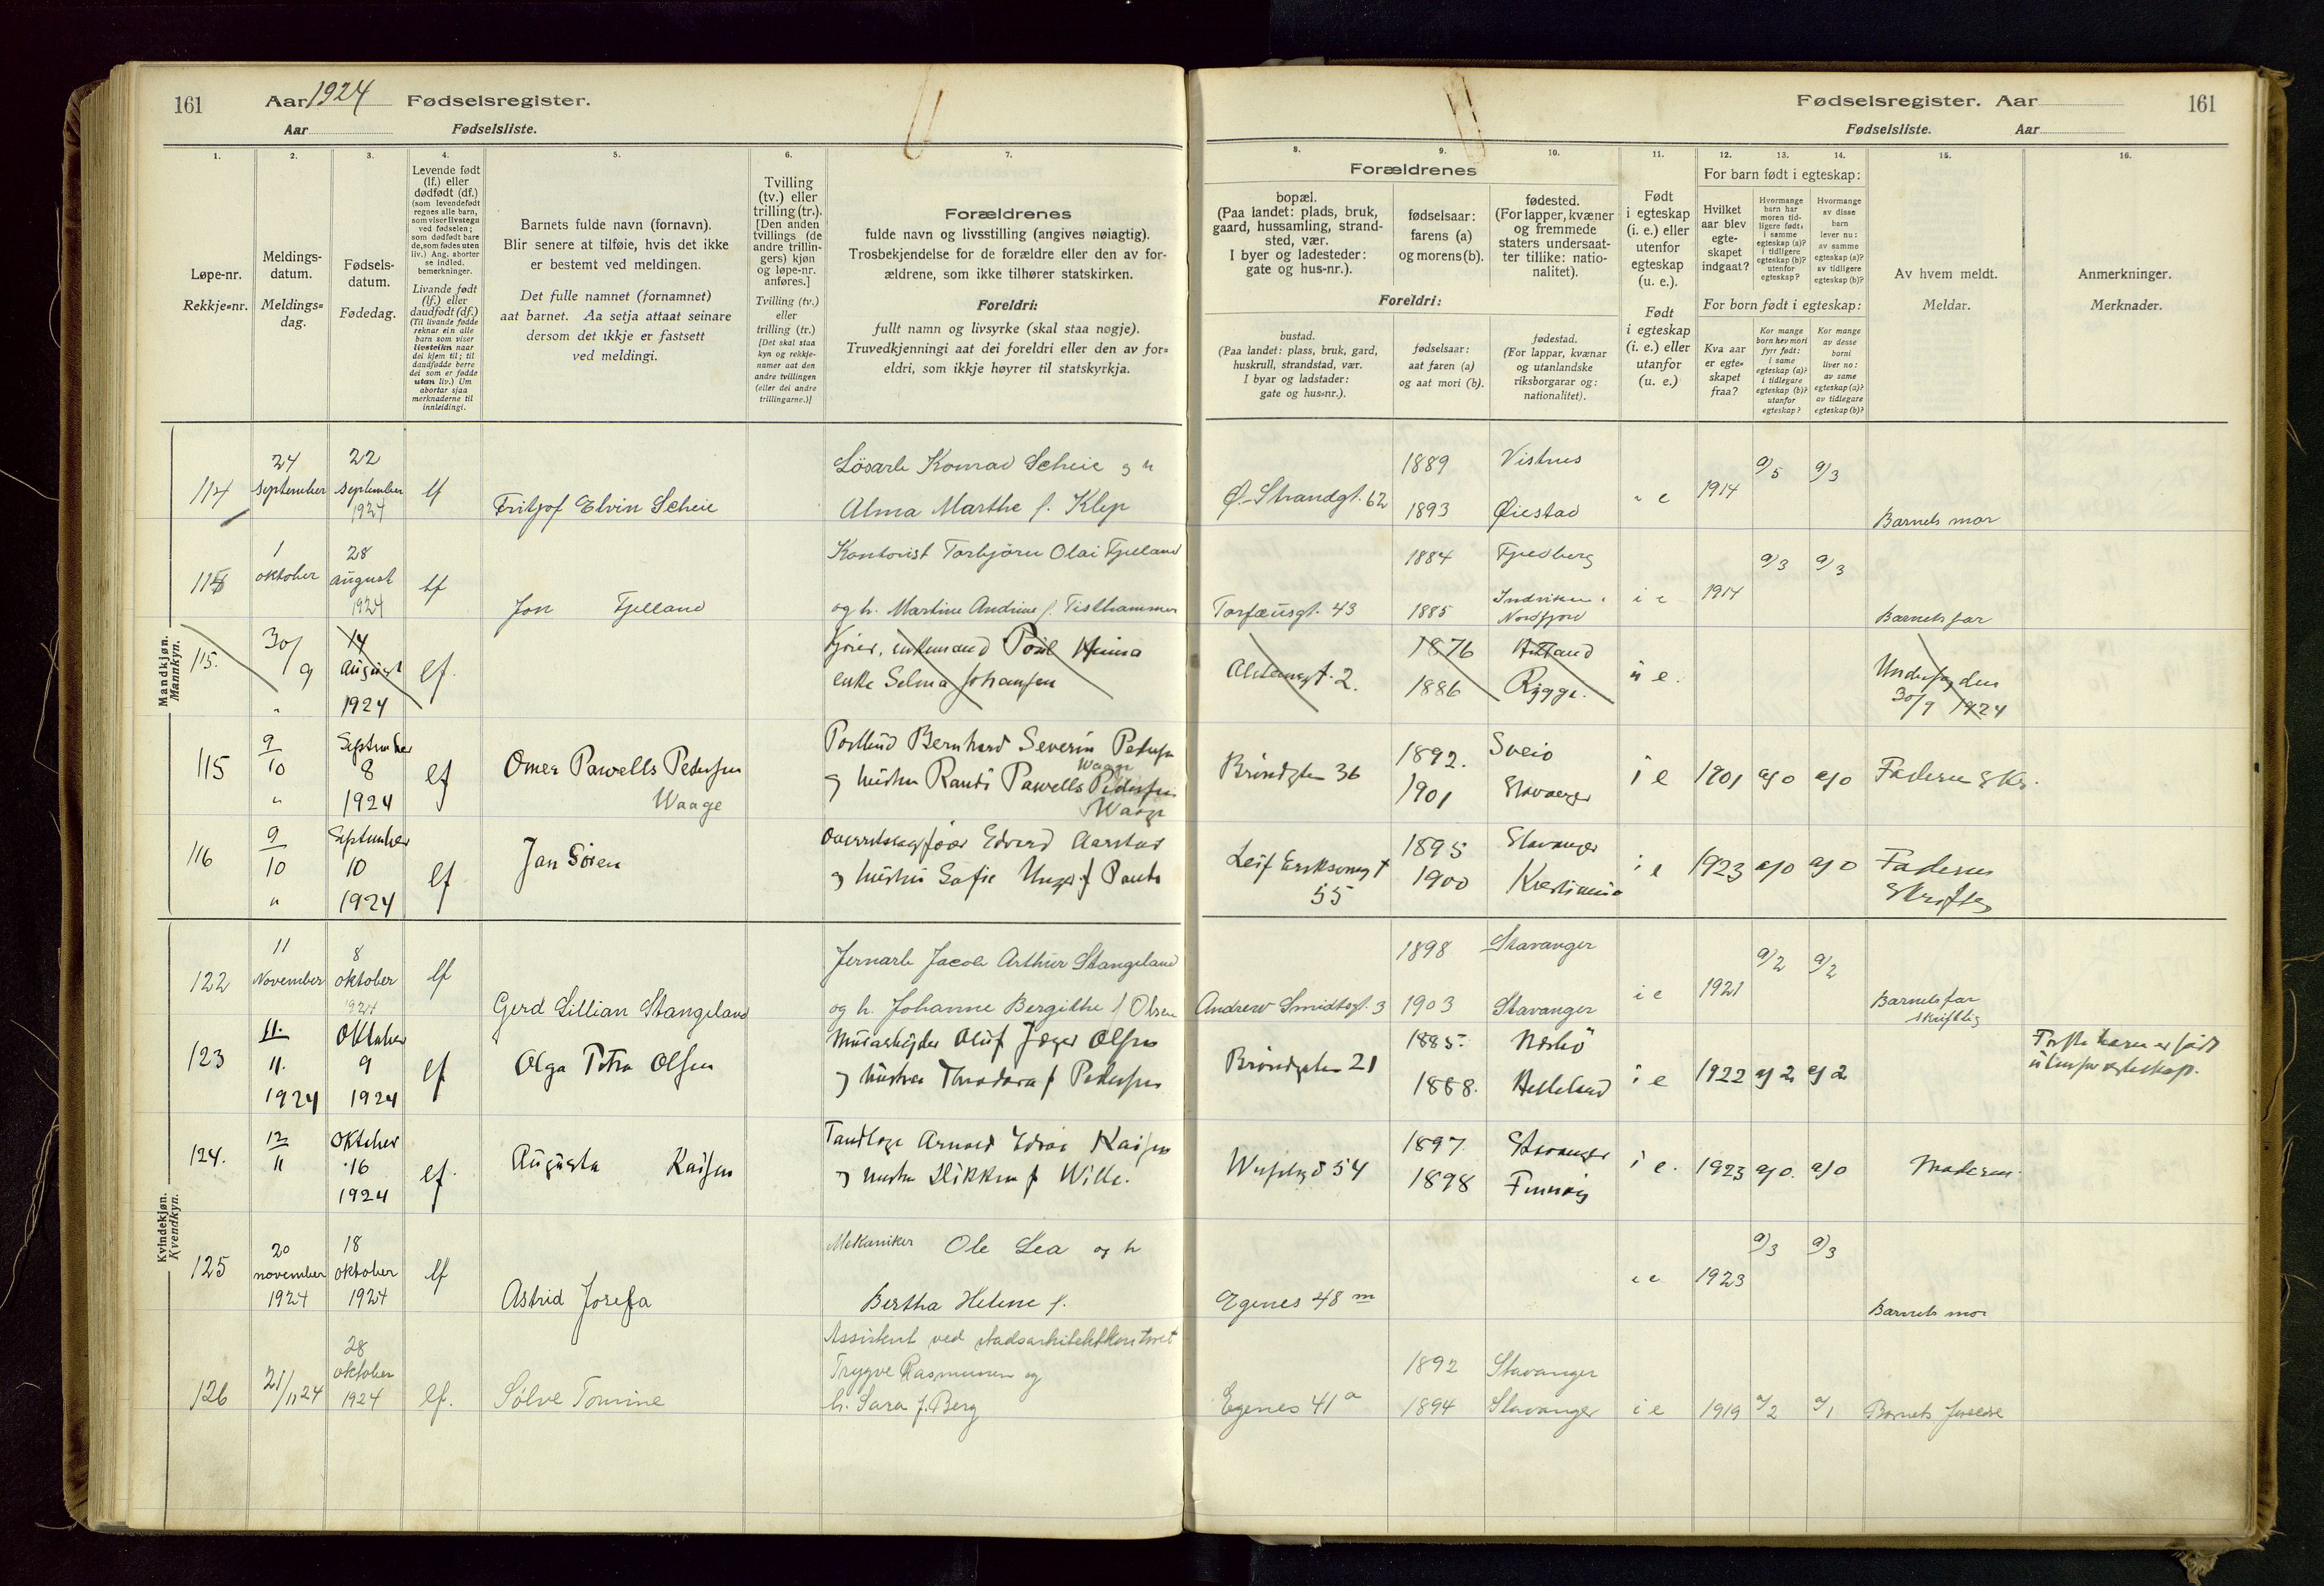 161 Aar 1924 Fødselsregister.
Aar Fødselsliste.
Fødselsregister. Aar 161
Fødselsliste. Aar
1. 2. 3. 4. 5. 6. 7.
Løpe-nr.
Rekkje=nr.
Meldings-
datum.
Meldings=
dag.
Fødsels-
datum.
Fødedag.
Levende født
(lf.) eller
dødfødt (df.)
(som levendefødt
regnes alle barn,
som viser livstegn
ved fødselen;
som dødfødt bare
de, som fødes uten
liv.) Ang. aborter
se indled.
bemerkninger.
Livande født
(lf.) eller
daudfødt (df.)
(Til livande fødde
reknar ein alle
barn som viser
livsteikn naar
dei kjem til; til
daudfødde berre
dei som er fødde
utan liv.) Um
abortar sjaa
merknaderne til
innleidingi.
Barnets fulde navn (fornavn).
Blir senere at tilføie, hvis det ikke
er bestemt ved meldingen.
Det fulle namnet (fornamnet)
aat barnet. Aa setja attaat seinare
dersom det ikkje er fastsett
ved meldingi.
Tvilling
(tv.) eller
trilling (tr.).
[Den anden
tvillings (de
andre trillin-
gers) kjøn
og løpe-nr.
anføres.]
Tvilling (tv.)
eller
trilling (tr.)
[Det skal staa
kyn og rekkje-
numer aat den
andre tvillingen
(eller dei andre
trillingarne.)]
Forældrenes
fulde navn og livsstilling (angives nøiagtig).
Trosbekjendelse for de forældre eller den av for-
ældrene, som ikke tilhører statskirken.
Foreldri:
fullt namn og livsyrke (skal staa nøgje).
Truvedkjenningi aat dei foreldri eller den av for=
eldri, som ikkje høyrer til statskyrkja.
8. 9. 10. 11. 12. 13. 14. 15. 16.
Forældrenes
bopæl.
(Paa landet: plads, bruk,
gaard, hussamling, strand-
sted, vær.
I byer og ladesteder:
gate og hus-nr.).
fødselsaar:
farens (a)
og morens (b).
fødested.
(For lapper, kvæner
og fremmede
staters undersaat-
ter tillike: natio-
nalitet).
Foreldri:
bustad.
(Paa landet: plass, bruk, gard,
huskrull, strandstad, vær.
I byar og ladstader:
gate og hus=nr.).
fødselsaar:
aat faren (a)
og aat mori (b).
fødestad.
(For lappar, kvænar
og utanlandske
riksborgarar og:
nationalitet).
Født
i egteskap
(i. e.) eller
utenfor
egteskap
(u. e.).
Født
i egteskap
(i. e.) eller
utanfor
(u. e.)
For barn født i egteskap:
Hvilket
aar blev
egte-
skapet
indgaat?
Hvormange
barn har
moren tid-
ligere født:
i samme
egteskap (a)?
i tidligere
egteskap (b)?
utenfor
egteskap?
Hvormange
av disse
barn
lever nu:
av samme
egteskap (a)?
av tidligere
egteskap (b)?
For born født i egteskap:
Kva aar
er egte=
skapet
fraa?
Kor mange
born hev mori
fyrr født:
i same
egteskap (a)?
i tidlegare
egteskap (b)?
utanfor
egteskap?
Kor mange
av desse
borni
liver no:
av same
egteskap (a)?
av tidlegare
egteskap (b)?
Av hvem meldt.
Meldar.
Anmerkninger.
Merknader.
Mandkjøn.
Mannkyn.
114 24 september 22 september 1924 lf Fritjof Elvin Scheie
Løsarb Konrad Scheie og h
Alma Marthe f. Klep
Ø. Strandgt. 62 1889 Vistnes 1893 Øiestad i e 1914 a/5 a/3 Barnets mor
1 oktober 28 august 1924 lf Jon Fjelland
Kontorist Torbjørn Olai Fjelland
og h. Martine Andrine f. Tisthammer
Torfæusgt. 43 1884 Fjedberg 1885 Indviken i Nordfjord i e 1914 a/3 a/3 Barnets far
115. 30/9 14 August 1924 lf.
enkemand
enke Selma Johansen
2. 1876 1886 Rygge. u e.
30/9 1924
115 9/10 September 8 1924 lf Omer Pawells Pedersen
Waage
Postbud Bernhard Severin Pedersen
Waage
og hustru Randi Pawells Pedersen
Waage
Brøndgten 36 1892. Sveio 1901 Stavanger i e 1901 a/0 a/0 Faderen
116 9/10 September 10 1924 lf Jan Søren
Overretssagfører Edvard Aarstad
og hustru Sofie
Leif Eriksonsgt 55 1895 Stavanger 1900 Kristiania i e 1923 a/0 a/0 Faderen
Skriftlig
Kvindekjøn.
Kvendkyn.
122 11 November 8 oktober 1924 lf Gerd Lillian Stangeland
Jernarb Jacob Arthur Stangeland
og h. Johanne Bergithe f Olsen
Andrew Smidtsgt. 3 1898 Stavanger 1903 Stavanger i e 1921 a/2 a/2 Barnets far
skriftlig
123 11. 11. 1924 Oktober 9 1924 lf Olga Petra Olsen
Murarbeider Oluf Jæger Olsen
og hustru Theodora f Pedersen
Brøndgten 21 1885. Nærbø 1888. Helleland i e 1922 a/2 a/2
Første barn er født
utenfor egteskap.
124. 12/11 Oktober 16 1924 lf. Augusta Kaisen
Tandlæge Arnold Edvar Kaisen
og hustru f Wille.
54 1897. Stavanger 1898 i e. 1923 a/0. a/0 Moderen.
125 20 november 1924 18 oktober 1924 lf Astrid Josefa
Mekaniker Ole Lea og h
Bertha Helene f.
Egenes 48 m i e 1923 a/3 a/3 Barnets mor
126 21/11 24 28 oktober 1924 lf. Sølve Tomine
Assistent ved stadsarkitektkontoret
Trygve Rasmussen og
h. Sara f. Berg
Egenes 41 a 1892 Stavanger 1894 Stavanger i e 1919 a/2 a/1 Barnets